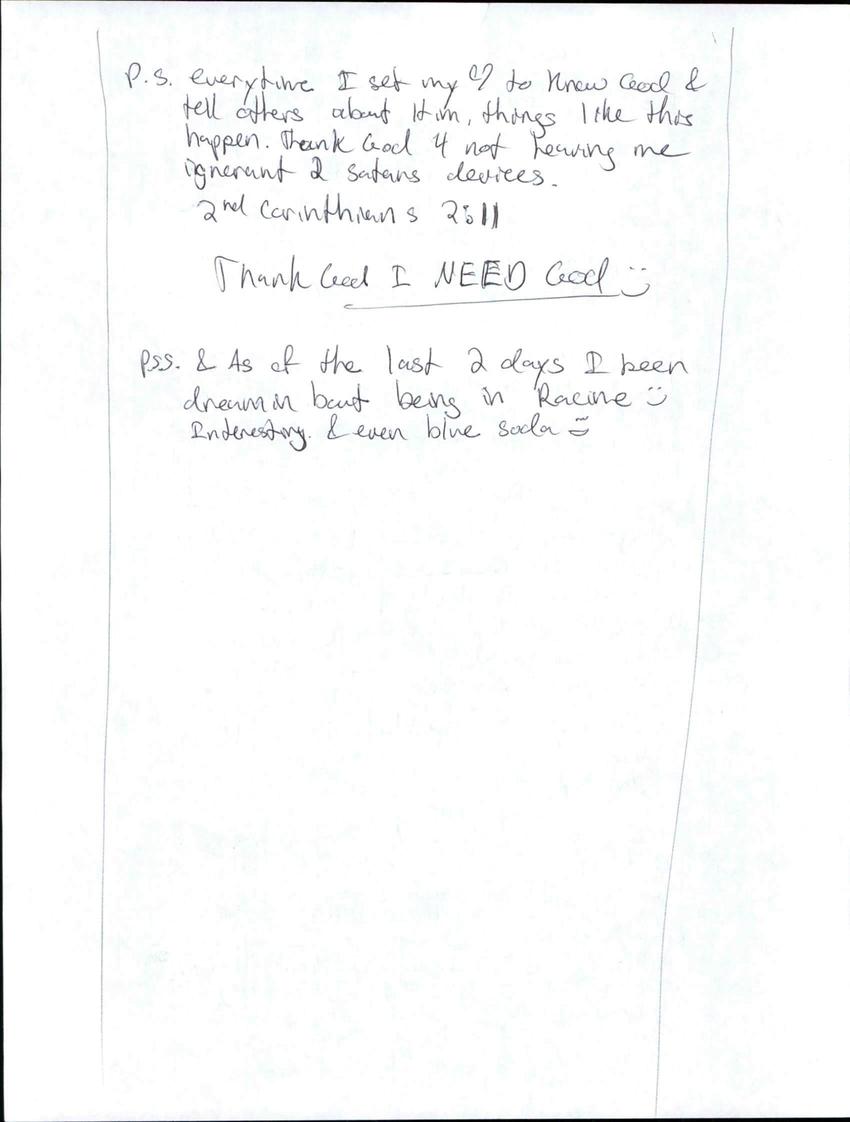 P.S. everytime I set my ♡ to know God &
tell others about Him, things like this
happen. Thank God 4 not leaving me
ignerant 2 satans devices.
2nd Corinthians 2:11
Thank God I NEED God :)
Pss. & As of the last 2 days I been
dreamin bout being in Racine :)
Interesting. & even blue soda :)